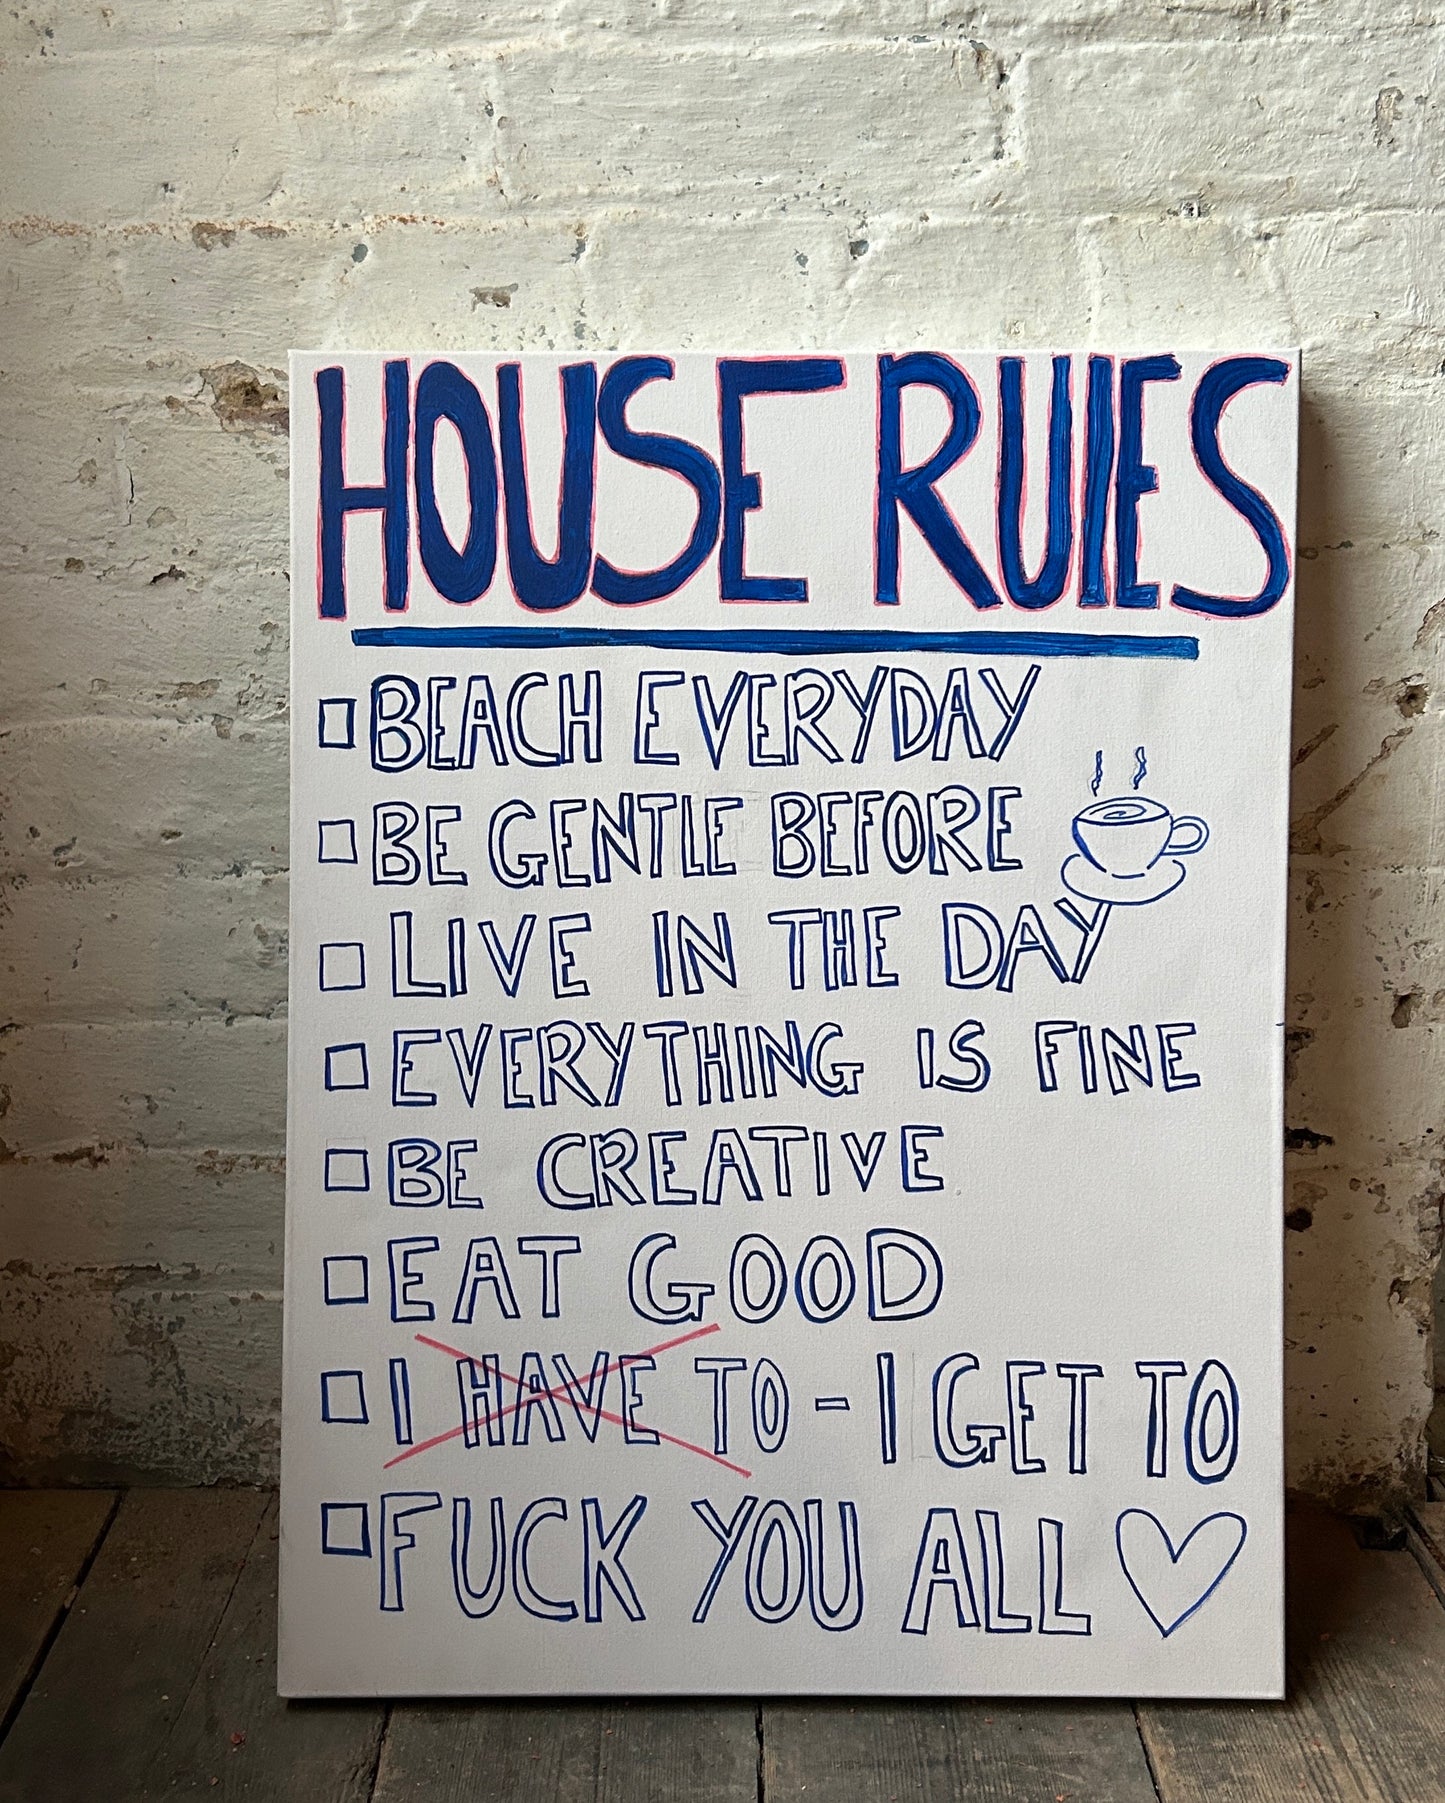 HOUSE RULES
BEACH EVERYDAY
BE GENTLE BEFORE
LIVE IN THE DAY
EVERYTHING IS FINE
BE CREATIVE
EAT GOOD
I HAVE TO - I GET TO
FUCK YOU ALL